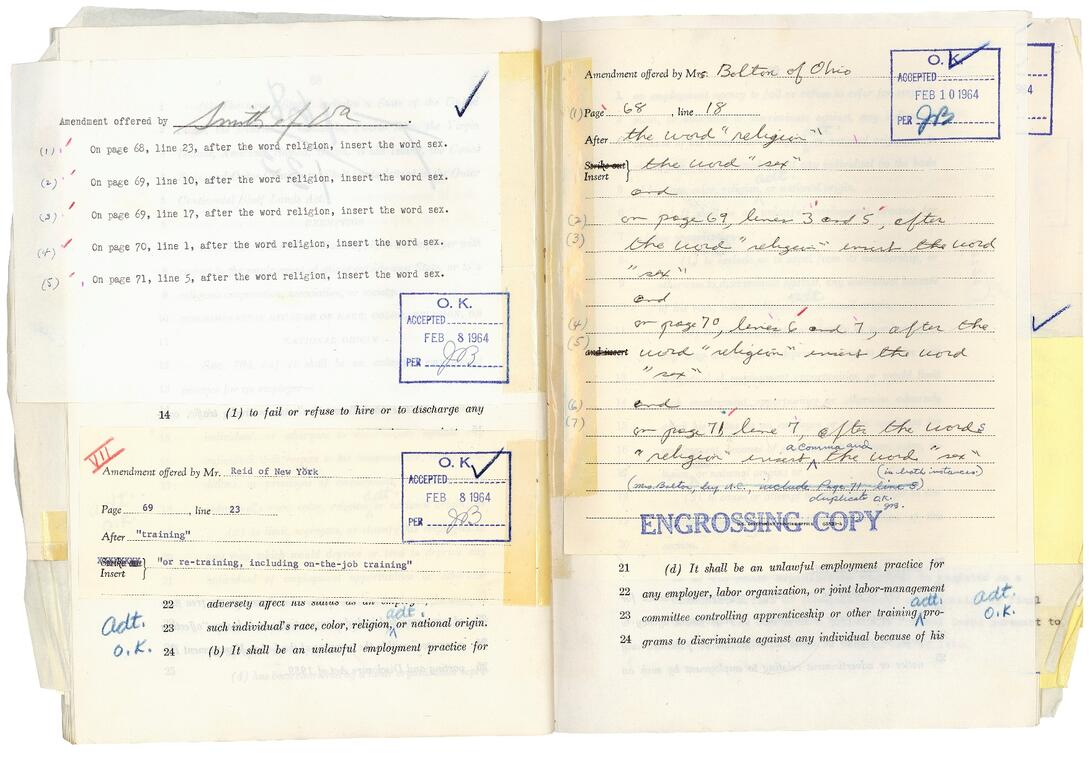 Amendment offered by Smith of Va.
(1) On page 68, line 23, after the word religion, insert the word sex.
(2) On page 69, line 10, after the word religion, insert the word sex.
(3) On page 69, line 17, after the word religion, insert the word sex.
(4) On page 70, line 1, after the word religion, insert the word sex.
(5) On page 71, line 5, after the word religion, insert the word sex.
O. K.
ACCEPTED
FEB 8 1964
PER JB
14 (1) to fail or refuse to hire or to discharge any
VII
Amendment offered by Mr. Reid of New York
Page 69, line 23
After "training"
Strike out
Insert } "or re-training, including on-the-job training"
O. K.
ACCEPTED
FEB 8 1964
PER JB
22 adversely affect his status as an
adt.
23 such individual's race, color, religion, or national origin.
24 (b) It shall be an unlawful employment practice for
adt.
O.K.
Amendment offered by Mrs. Bolton of Ohio
(1) Page 68, line 18
After the word "religion"
Strike out
Insert } the word "sex"
and
(2) on page 69, lines 3 and 5, after
(3) the word "religion" insert the word
"sex"
and
(4) on page 70, lines 6 and 7, after the
(5) and insert word "religion" insert the word
"sex"
(6) and
(7) on page 71, line 7, after the words
a comma and
"religion" insert the word "sex"
(in both instances)
(Mrs. Bolton, by U.C., include Page 71, line 5)
duplicate O.K.
JB.
O. K.
ACCEPTED
FEB 10 1964
PER JB
ENGROSSING COPY
21 (d) It shall be an unlawful employment practice for
22 any employer, labor organization, or joint labor-management
adt.
23 committee controlling apprenticeship or other training pro-
24 grams to discriminate against any individual because of his
adt.
O.K.